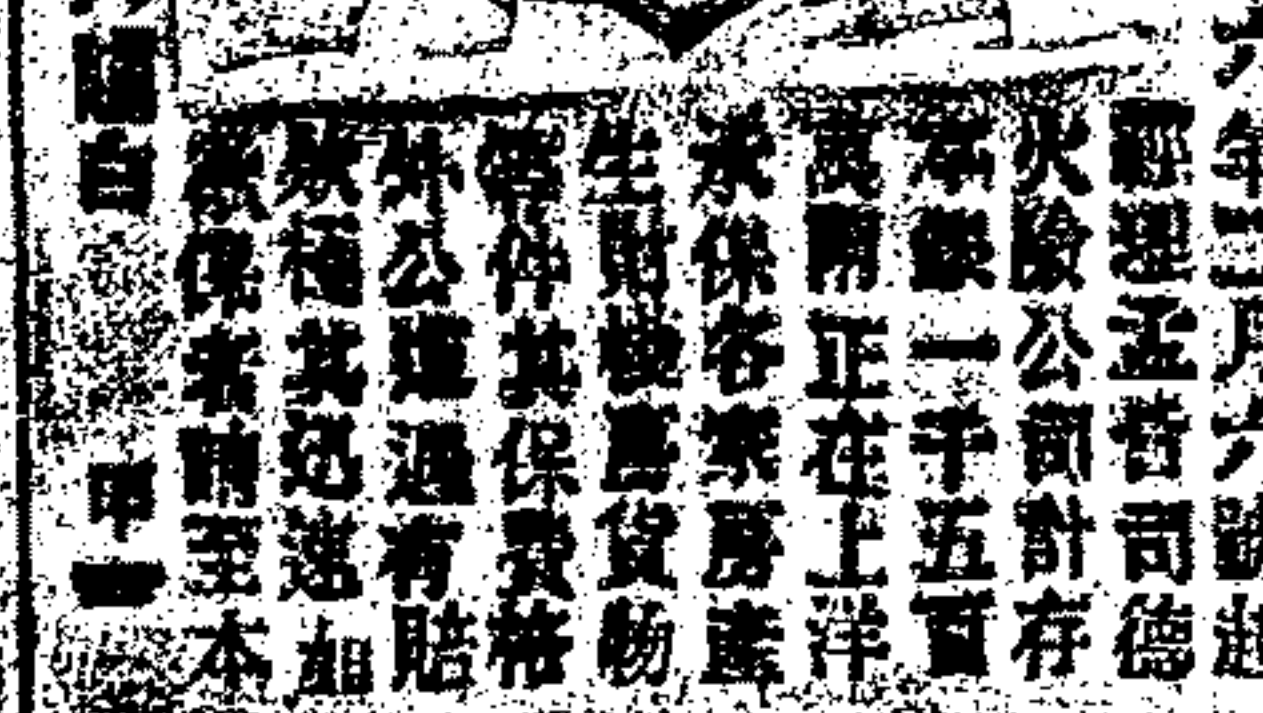 年二月六號
經理孟晢司德
火險公司計存
本銀一千五百
萬兩正在上洋
承保各家房產
生財機器貨物
等件其保費格
外公道遇有賠
款極其迅速如
欲保者請至本
白 甲一